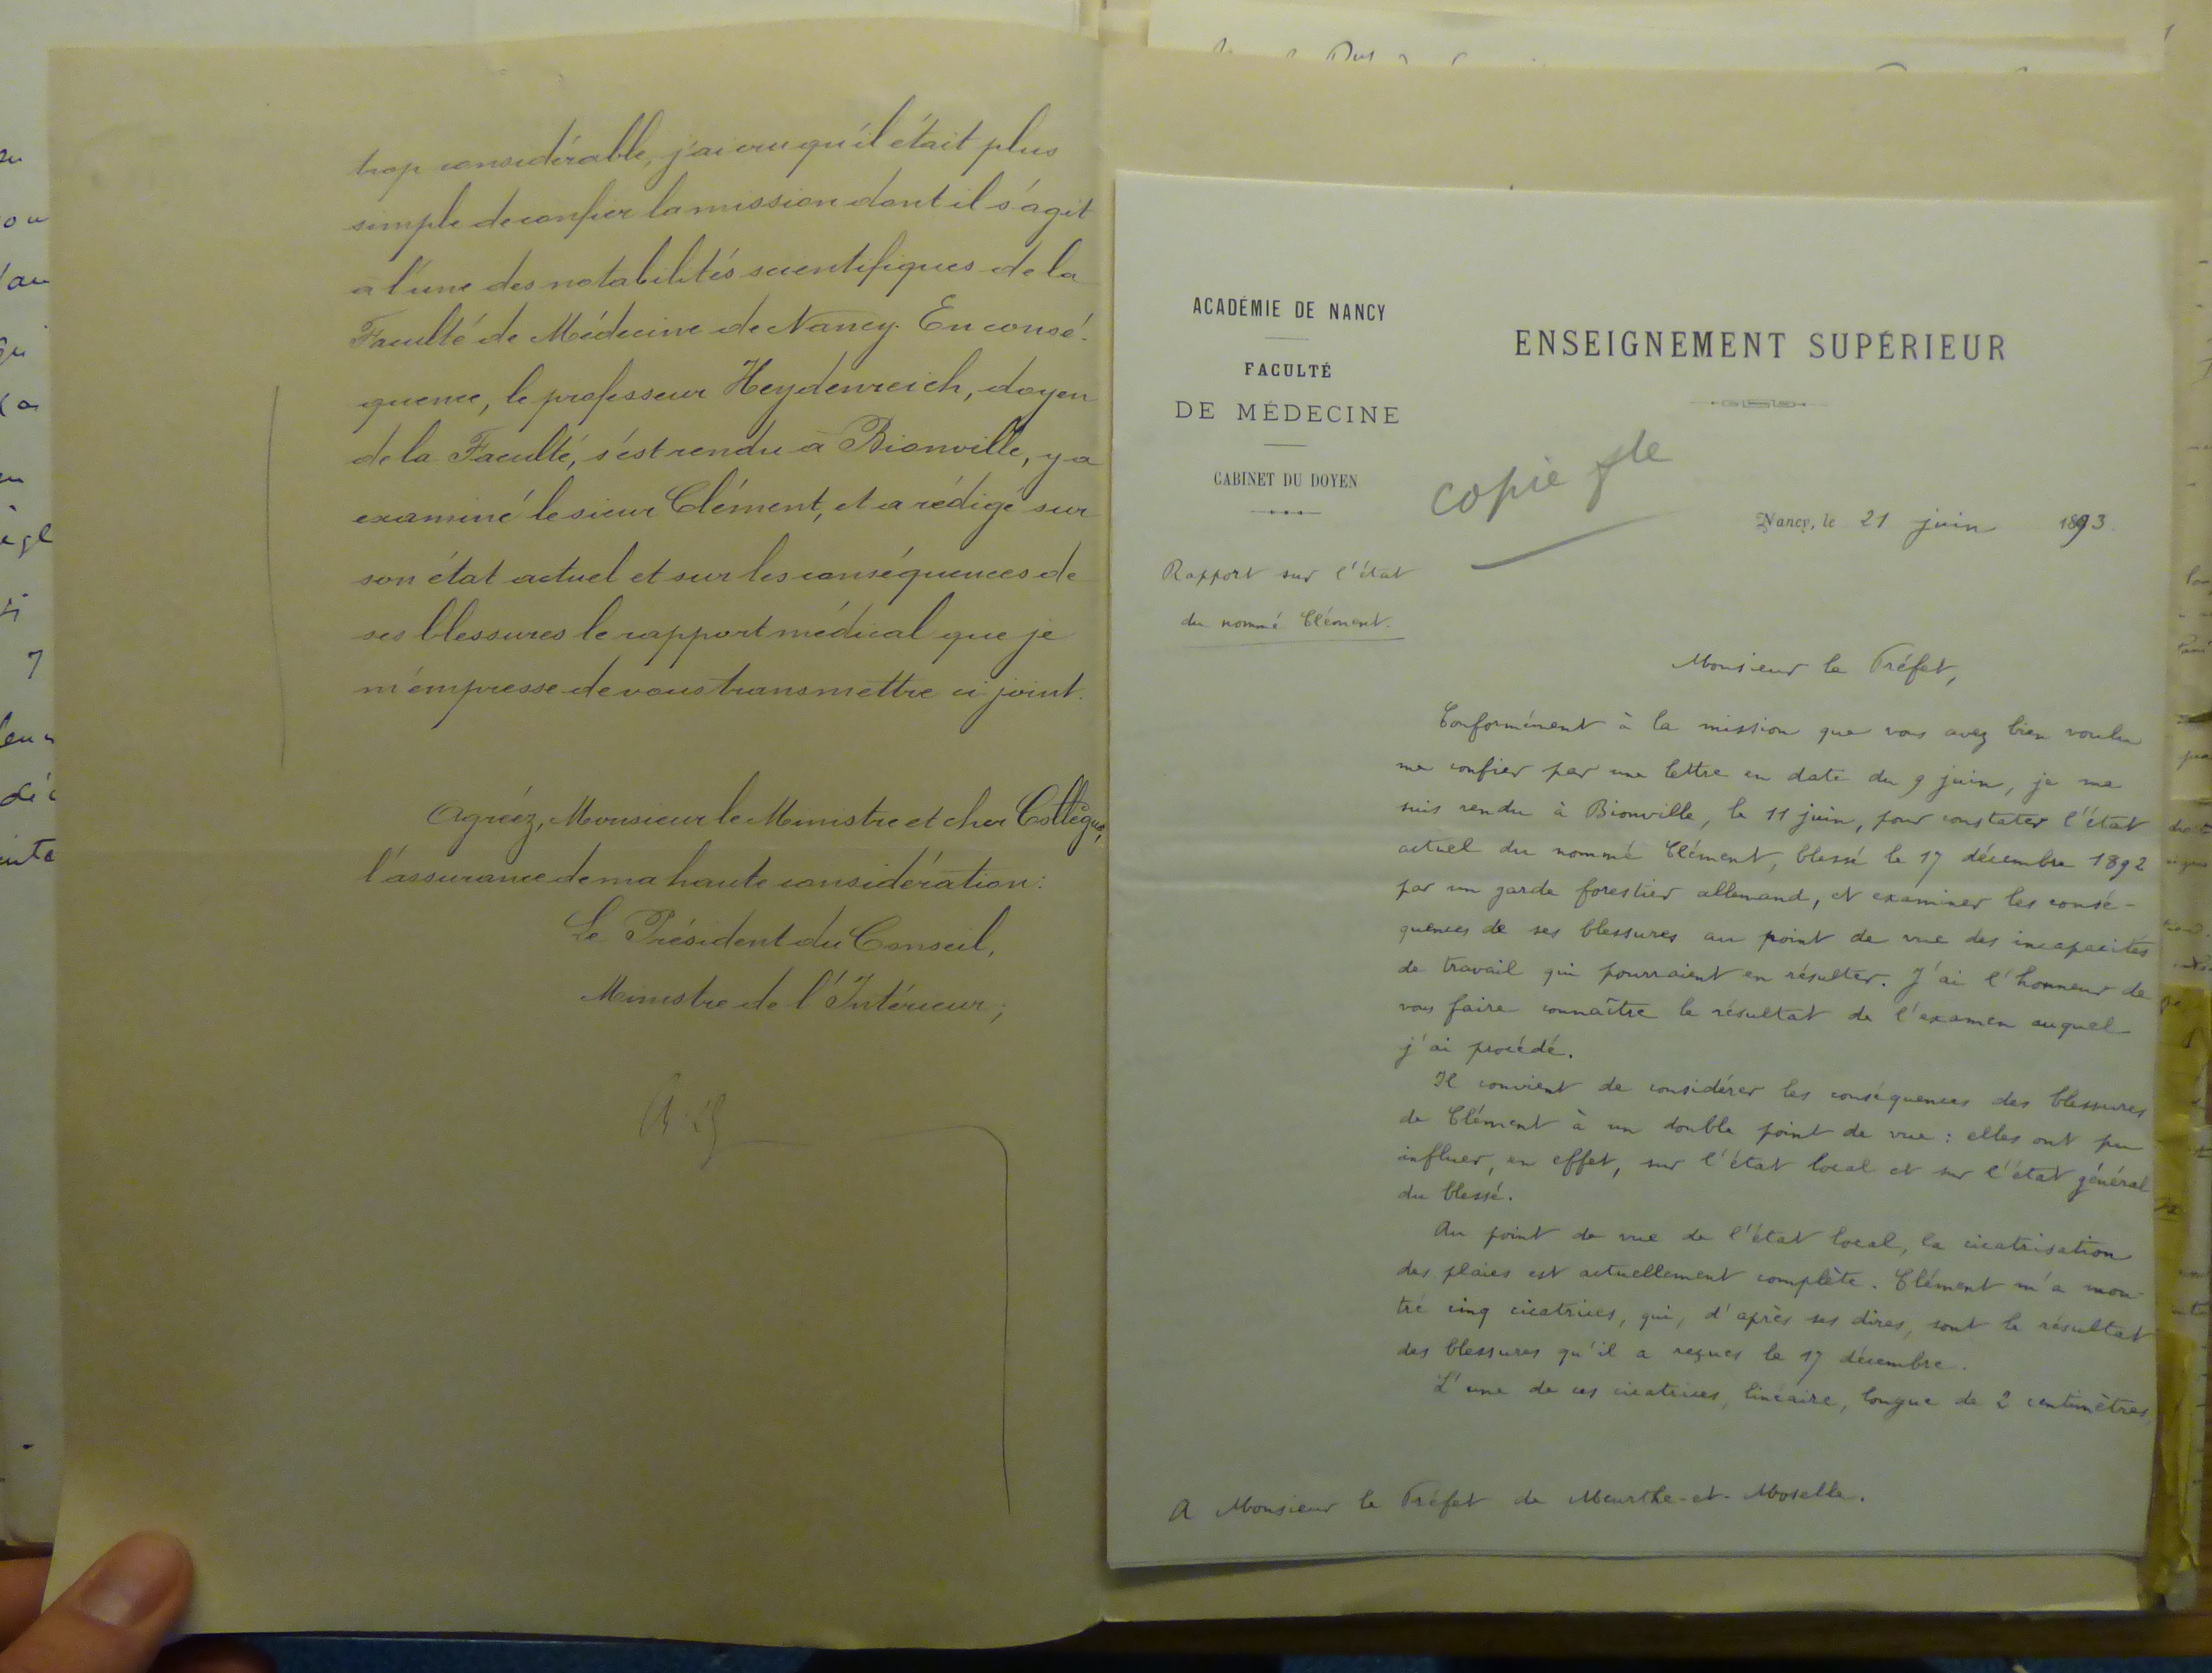 trop considérable, j'ai cru qu'il était plus
simple de confier la mission dont il s'agit
à l'une des notabilités scientifiques de la
Faculté de Médecine de Nancy. En consé-
quence, le professeur Heydenreich, doyen
de la Faculté, s'est rendu à Bionville, y a
examiné le sieur Clément, et a rédigé sur
son état actuel et sur les conséquences de
ses blessures le rapport médical que je
m'empresse de vous transmettre ci-joint.
Agréez, Monsieur le Ministre et cher Collègue,
l'assurance de ma haute considération:
Le Président du Conseil,
Ministre de l'Intérieur;
ACADÉMIE DE NANCY
FACULTÉ
DE MÉDECINE
CABINET DU DOYEN
Rapport sur l'état
du nommé Clément.
ENSEIGNEMENT SUPÉRIEUR
copie
Nancy, le 21 juin 1893.
Monsieur le Préfet,
Conformément à la mission que vous avez bien voulu
me confier par une lettre en date du 9 juin, je me
suis rendu à Bionville, le 11 juin, pour constater l'état
actuel du nommé Clément, blessé le 17 décembre 1892
par un garde forestier allemand, et examiner les consé-
quences de ses blessures au point de vue des incapacités
de travail qui pourraient en résulter. J'ai l'honneur de
vous faire connaître le résultat de l'examen auquel
j'ai procédé.
Il convient de considérer les conséquences des blessures
de Clément à un double point de vue : elles ont pu
influer, en effet, sur l'état local et sur l'état général
du blessé.
Au point de vue de l'état local, la cicatrisation
des plaies est actuellement complète. Clément m'a mon-
tré cinq cicatrices, qui, d'après ses dires, sont le résultat
des blessures qu'il a reçues le 17 décembre.
L'une de ces cicatrices, linéaire, longue de 2 centimètres,
A Monsieur le Préfet de Meurthe-et-Moselle.